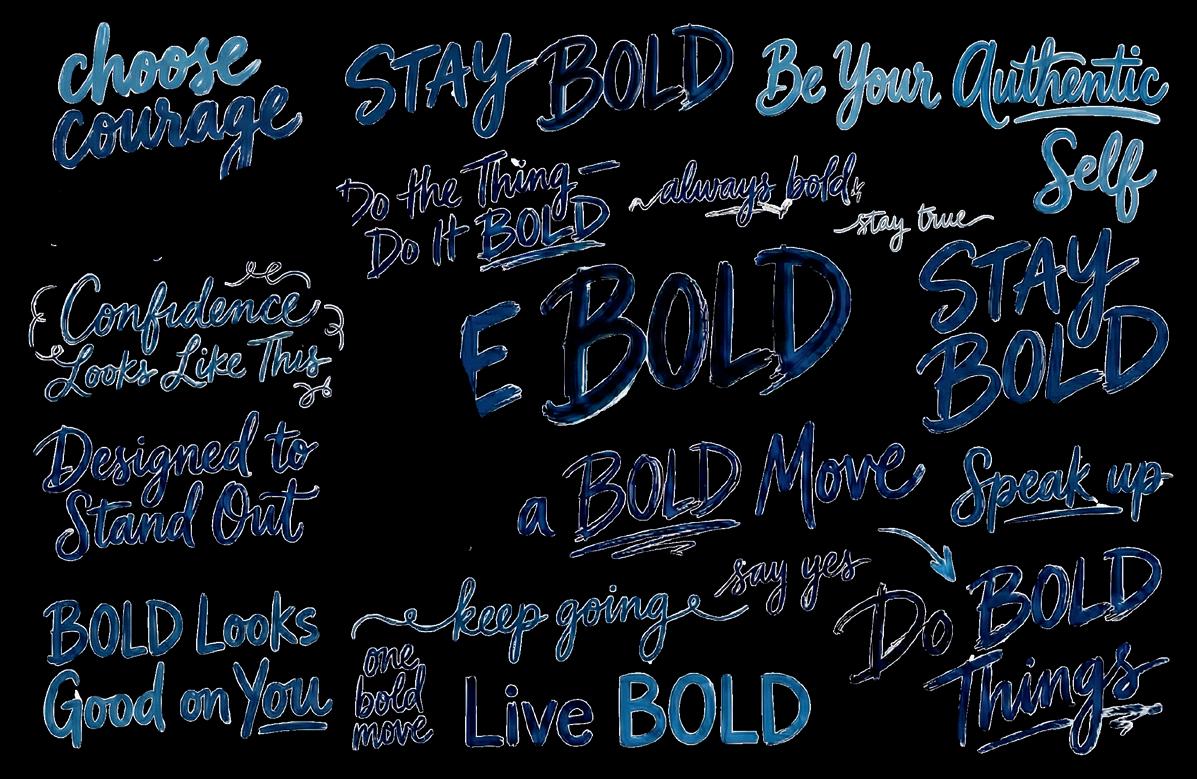 choose
courage
STAY BOLD
Be Your Authentic
Self
Do the Thing—
Do It BOLD
always bold
stay true
Confidence
Looks Like This
E BOLD
STAY
BOLD
Designed to
Stand Out
a BOLD Move
Speak up
say yes
keep going
Do BOLD
Things
BOLD Looks
Good on You
one
bold
move
Live BOLD